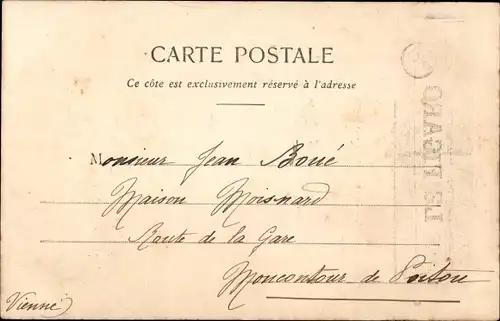 CARTE POSTALE
Ce côte est exclusivement réservé à l'adresse
Monsieur Jean Boué
Maison Moisnard
Route de la Gare
Moncontour de Poitou
(Vienne)